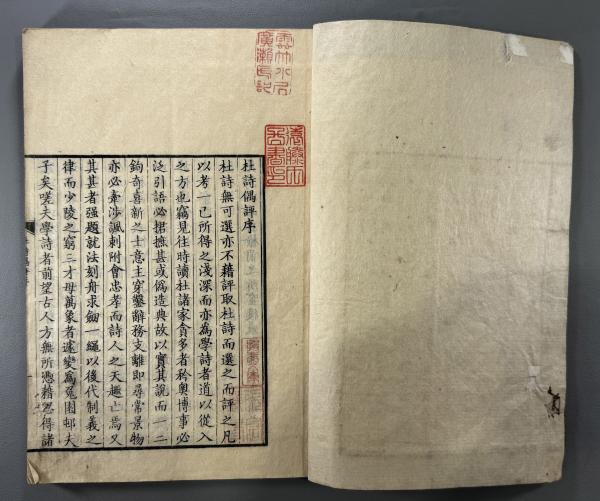 杜詩偶評序
杜詩無可選亦不藉評取杜詩而選之而評之凡
以考一已所得之淺深而亦為學詩者道以從入
之方也竊見往時讀杜諸家貪多者矜奥博事必
泛引語必捃摭甚或偽造典故以實其說而一二
鉤奇喜新之士意主穿鑿辭務支離即尋常景物
亦必牽涉諷刺附會忠孝而詩人之天趣亡焉又
其甚者强題就法刻舟求劒一繩以後代制義之
律而少陵之窮三才母萬象者遽變為兔園邨夫
子矣嗟夫學詩者前望古人方無所憑藉忍得諸